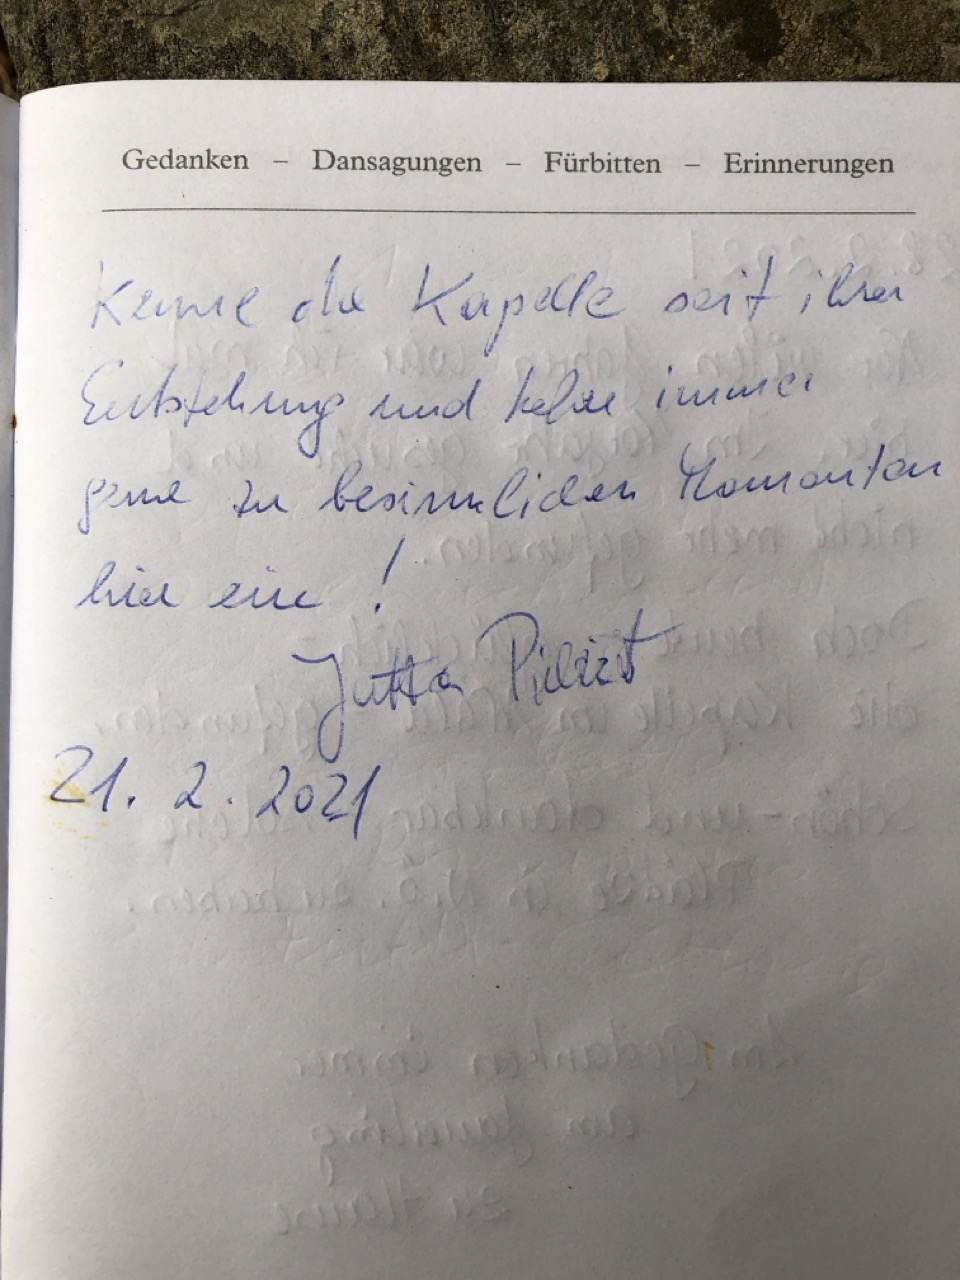 Gedanken – Dansagungen – Fürbitten – Erinnerungen
Kenne die Kapelle seit ihrer
Entstehung und kehre immer
gerne zu besinnlichen Momenten
hier ein!
Jutta
21. 2. 2021